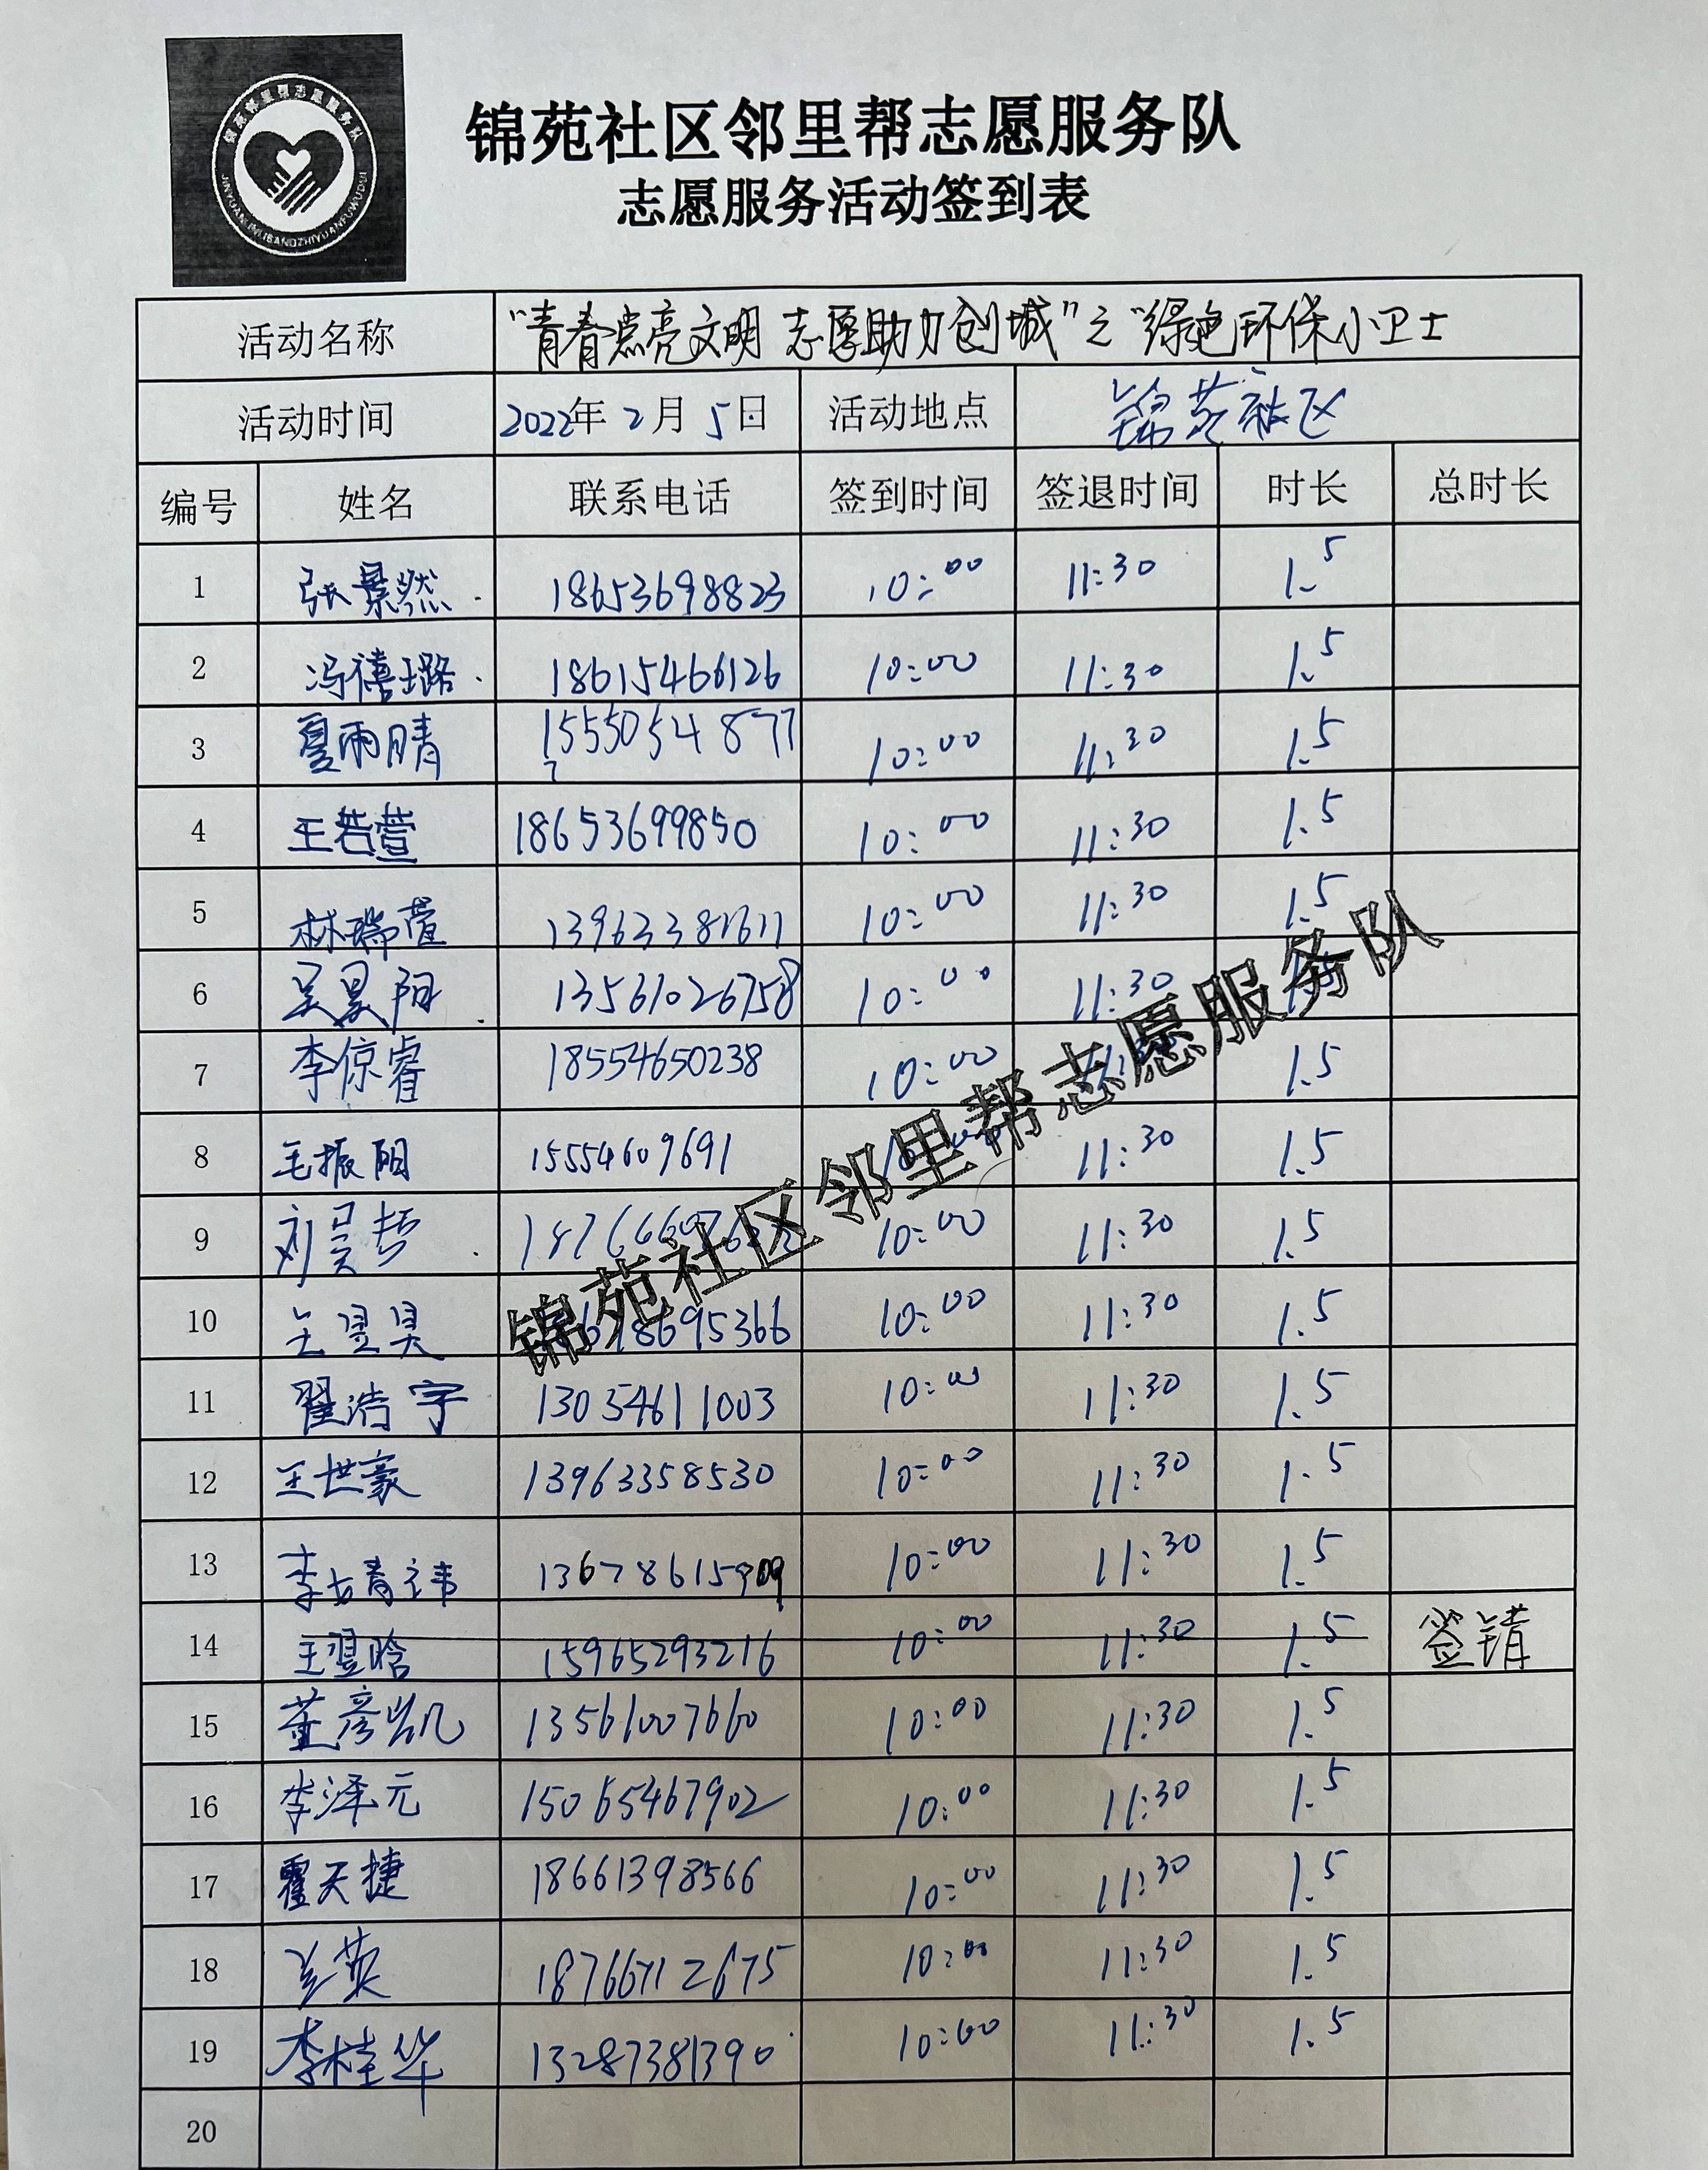 锦苑邻里帮志愿服务队
JINYUANLINLIBANGZHIYUANFUWUDUI
锦苑社区邻里帮志愿服务队
志愿服务活动签到表
活动名称 “青春点亮文明 志愿助力创城”之“绿色环保小卫士
活动时间 2022年 2月 5日 活动地点 锦苑社区
编号 姓名 联系电话 签到时间 签退时间 时长 总时长
1 张景然 18653698823 10:00 11:30 1.5
2 冯禧璐 18615466126 10:00 11:30 1.5
3 夏雨晴 1555054877 7 10:00 11:30 1.5
4 王若萱 18653699850 10:00 11:30 1.5
5 林瑞萱 10:00 11:30 1.5
6 吴昊阳 13561026758 10:00 11:30 1.5
7 李倞睿 18554650238 10:00 11:30 1.5
8 毛振阳 15554609691 10:00 11:30 1.5
9 刘昊哲 10:00 11:30 1.5
10 王昱昊 10:00 11:30 1.5
11 翟浩宇 13054611003 10:00 11:30 1.5
12 王世豪 13963358530 10:00 11:30 1.5
13 10:00 11:30 1.5
14 王翌晗 15965293216 10:00 11:30 1.5 签错
15 董彦凯 13561007660 10:00 11:30 1.5
16 李泽元 15065467902 10:00 11:30 1.5
17 霍天捷 18661398566 10:00 11:30 1.5
18 18766712675 10:00 11:30 1.5
19 李桂华 13287381390 10:00 11:30 1.5
20
锦苑社区邻里帮志愿服务队